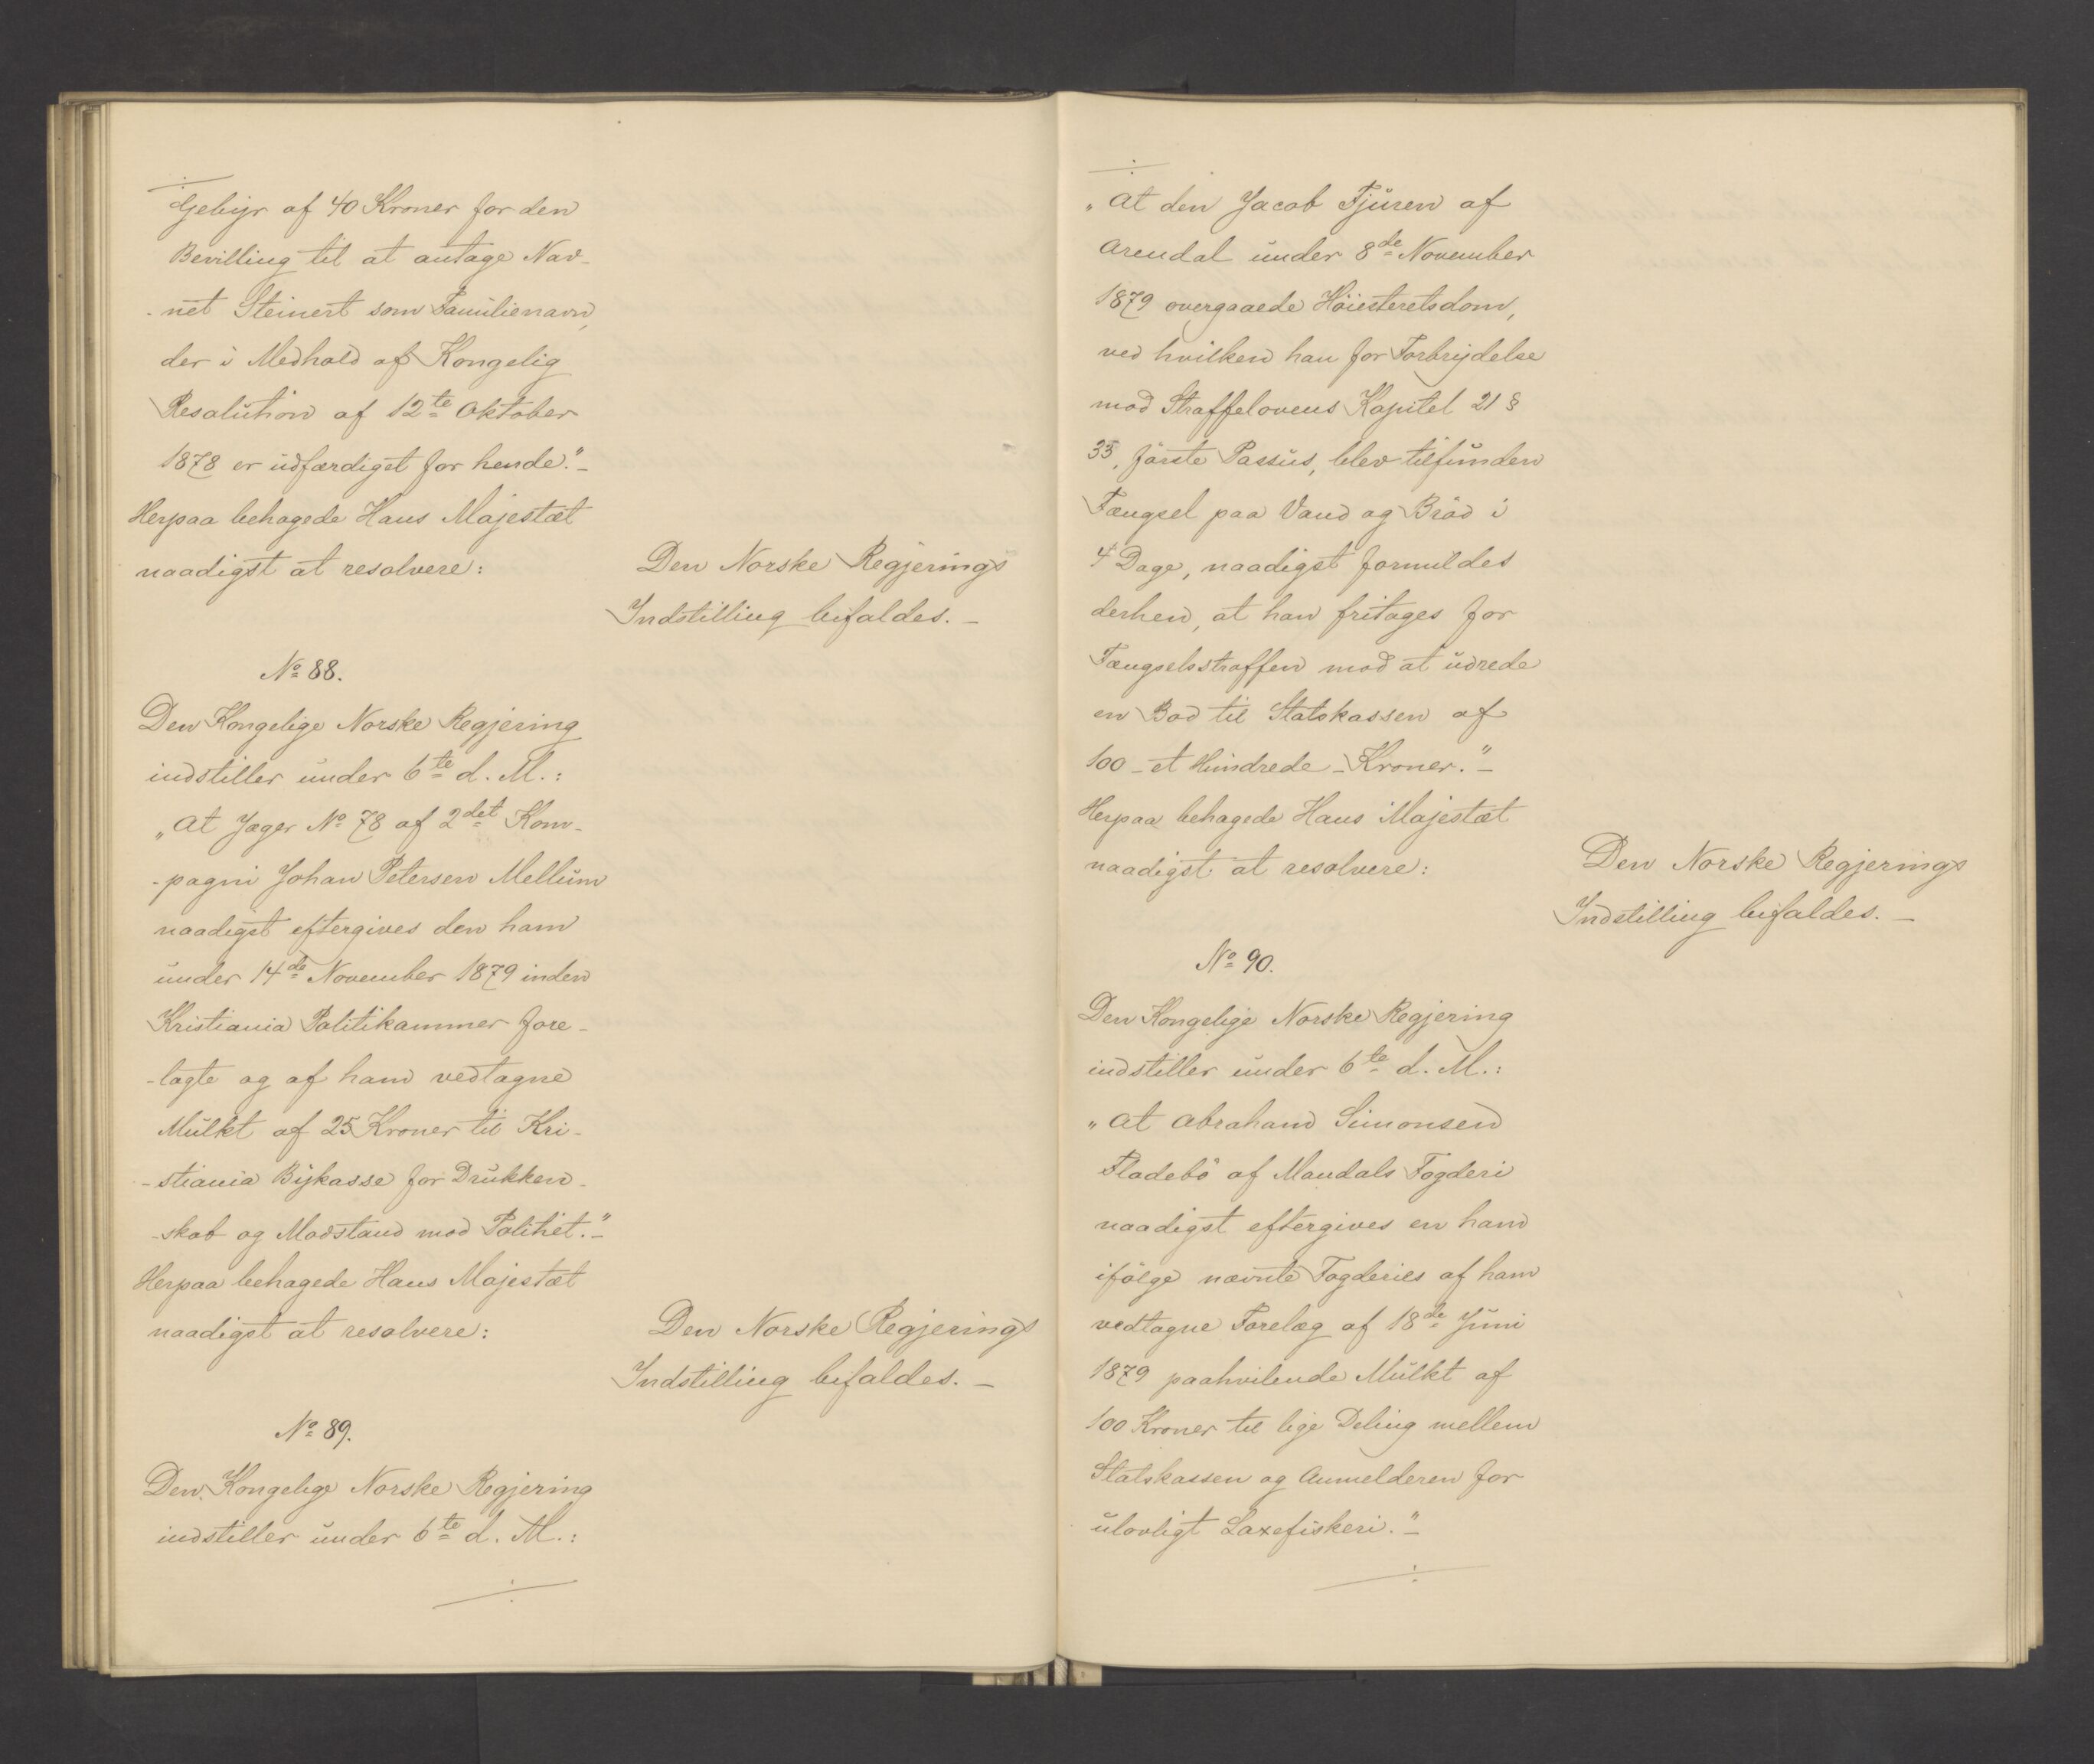 Gebyr af 40 Kroner for den
Bevilling til at antage Nav-
-net Steinert som Familienavn,
der i Medhold af Kongelig
Resolution af 12te Oktober
1878 er udfærdiget for hende."-
Herpaa behagede Hans Majestæt
naadigst at resolvere:
Den Norske Regjerings
Indstilling bifaldes. -
No 88.
Den Kongelige Norske Regjering
indstiller under 6te d. M.:
„At Jæger No 78 af 2det Kom-
-pagni Johan Petersen Mellum
naadigst eftergives den ham
under 14de November 1879 inden
Kristiania Politikammer fore-
-lagte og af ham vedtagne
Mulkt af 25 Kroner til Kri-
-stiania Bykasse for Drukken-
-skab og Modstand mod Politiet."-
Herpaa behagede Hans Majestæt
naadigst at resolvere:
Den Norske Regjerings
Indstilling bifaldes. -
No 89.
Den Kongelige Norske Regjering
indstiller under 6te d. M.:
„At den Jacob Tjuren af
Arendal under 8de November
1879 overgaaede Höiesteretsdom,
ved hvilken han for Forbrydelse
mod Straffelovens Kapitel 21 §
33, förste Passus, blev tilfunden
Fængsel paa Vand og Bröd i
4 Dage, naadigst formildes
derhen, at han fritages for
Fængselsstraffen mod at udrede
en Bod til Statskassen af
100 - et Hundrede - Kroner."-
Herpaa behagede Hans Majestæt
naadigst at resolvere:
Den Norske Regjerings
Indstilling bifaldes. -
No 90.
Den Kongelige Norske Regjering
indstiller under 6te d. M.:
„At Abraham Simonsen
Fladebö af Mandals Fogderi
naadigst eftergives en ham
ifölge nævnte Fogderies af ham
vedtagne Forelæg af 18de Juni
1879 paahvilende Mulkt af
100 Kroner til lige Deling mellem
Statskassen og Anmelderen for
ulovligt Laxefiskeri."-